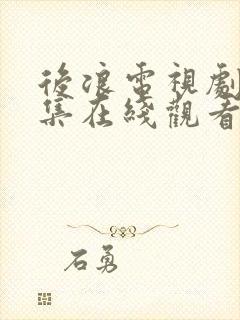 後浪電視劇
集在綫觀看
石勇